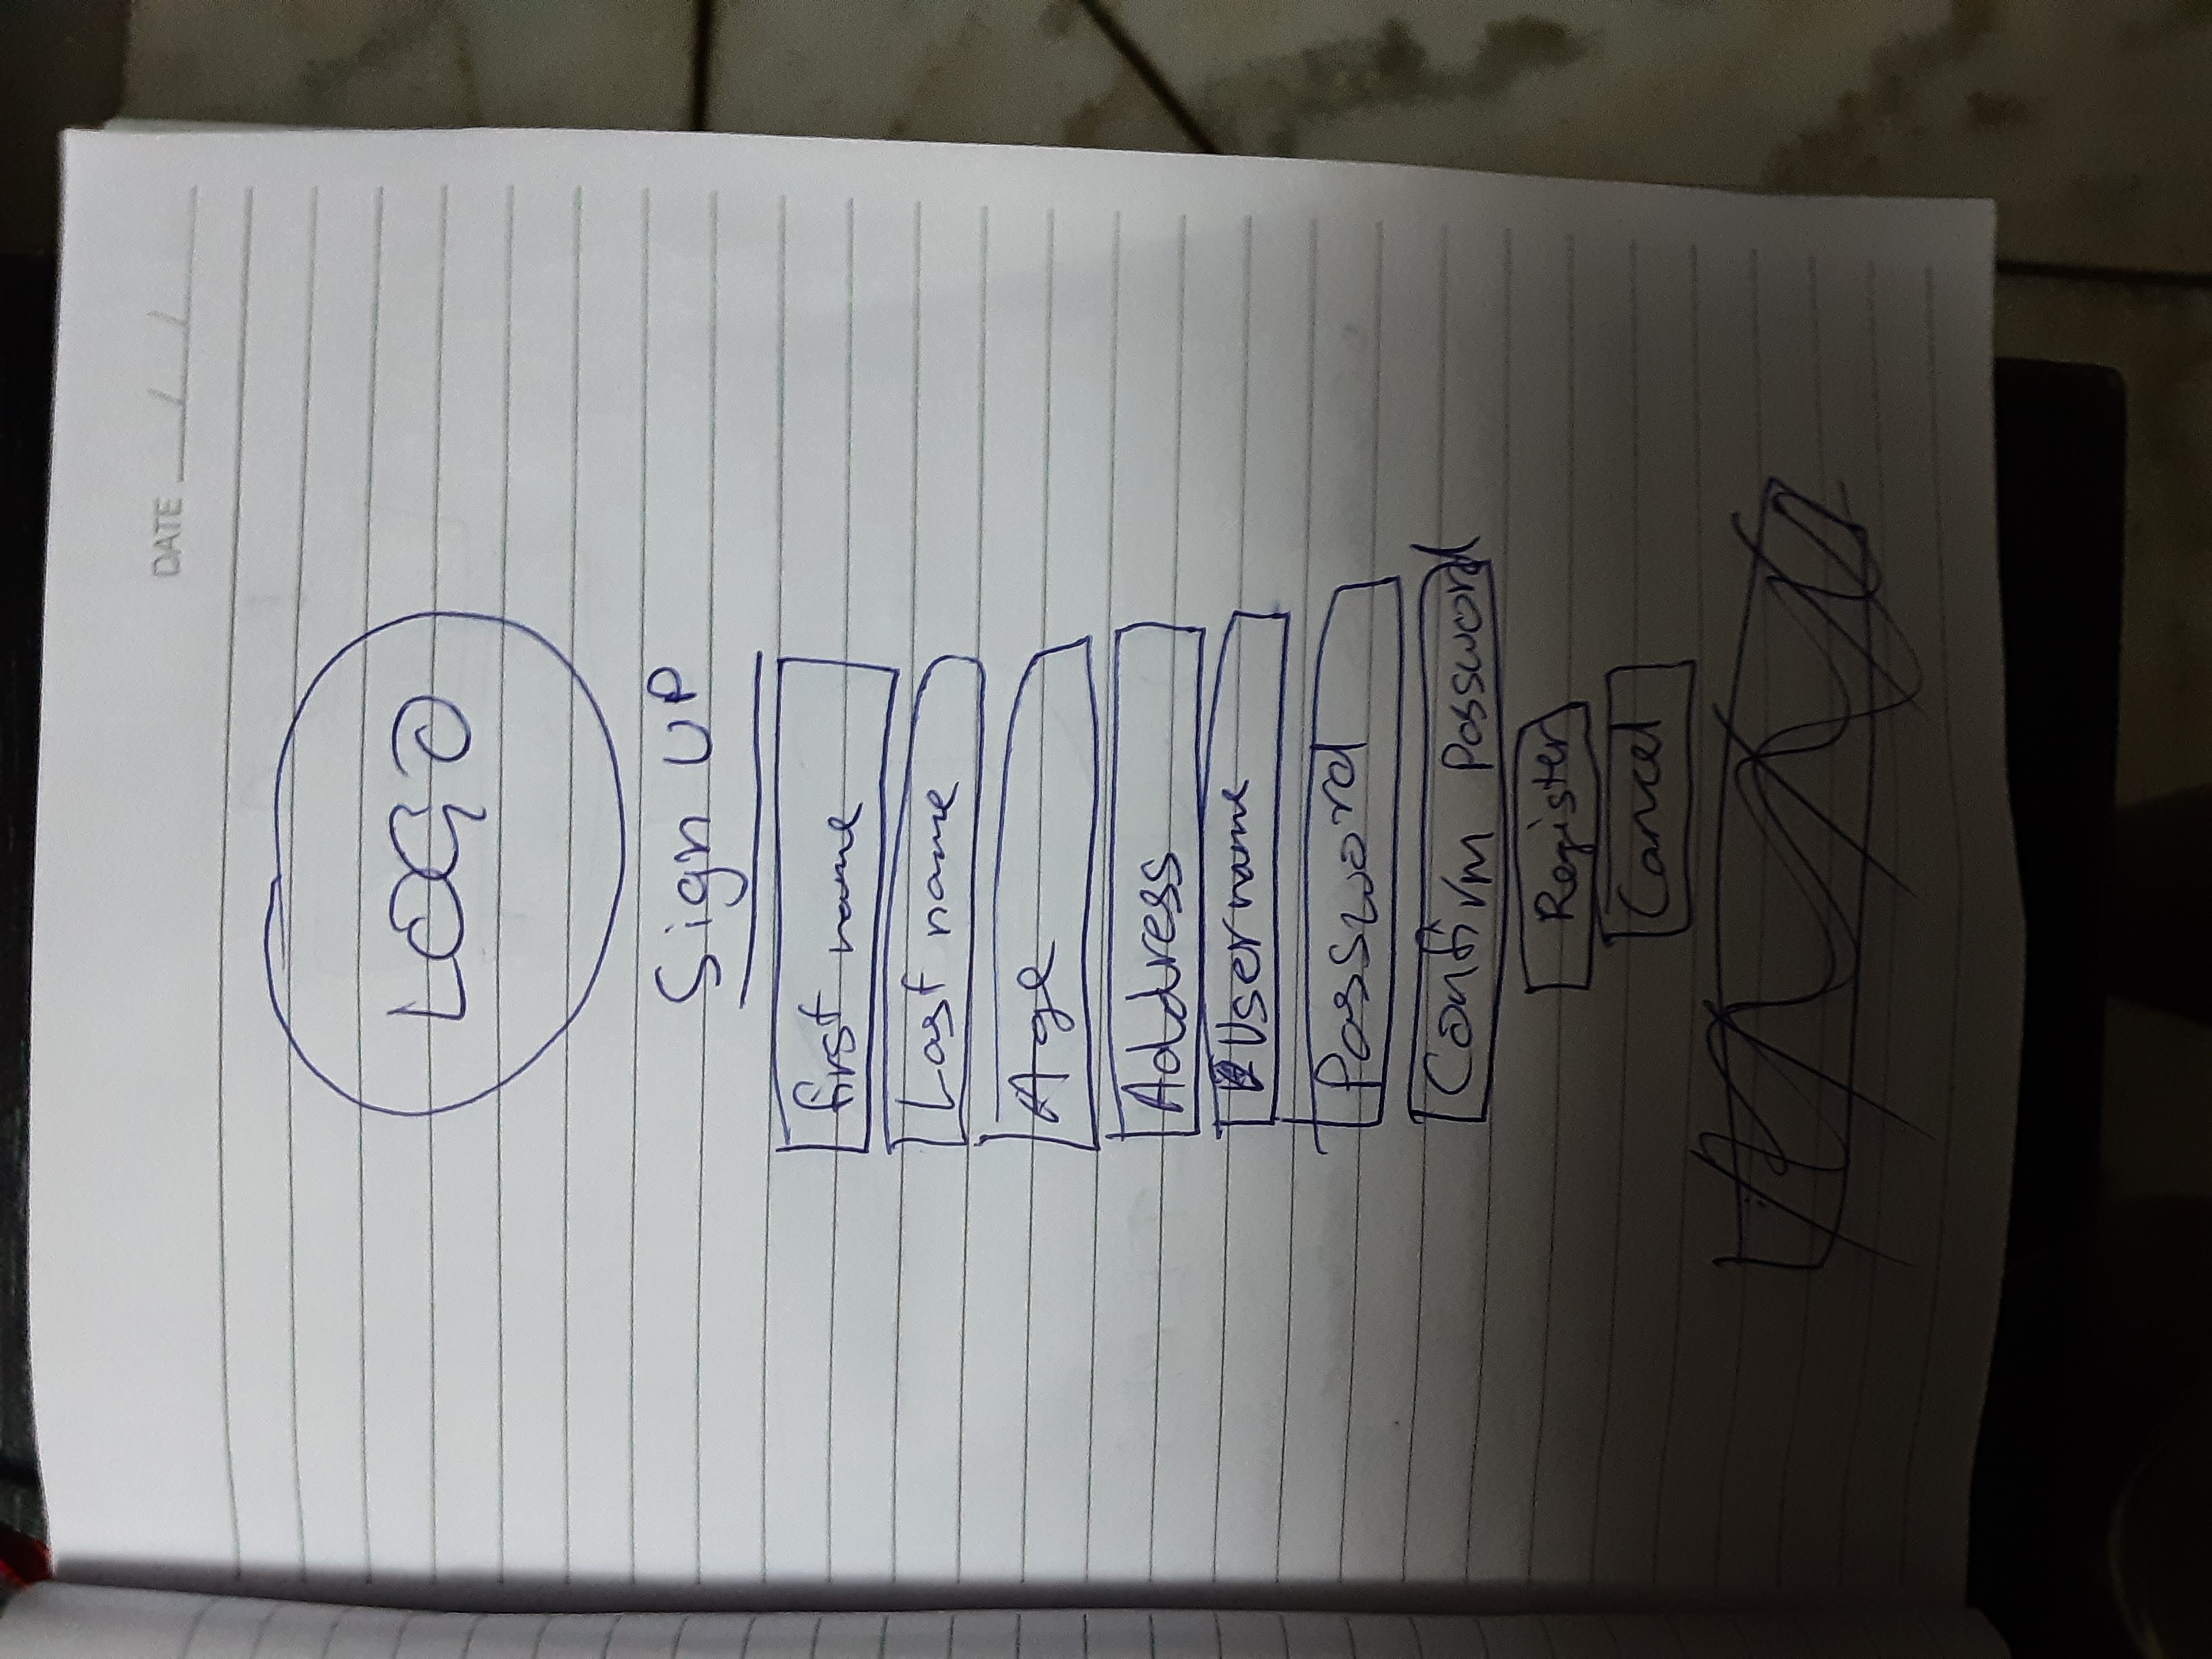 DATE / /
LOGO
Sign UP
first name
Last name
Age
Address
Username
Password
Confirm Password
Register
Cancel